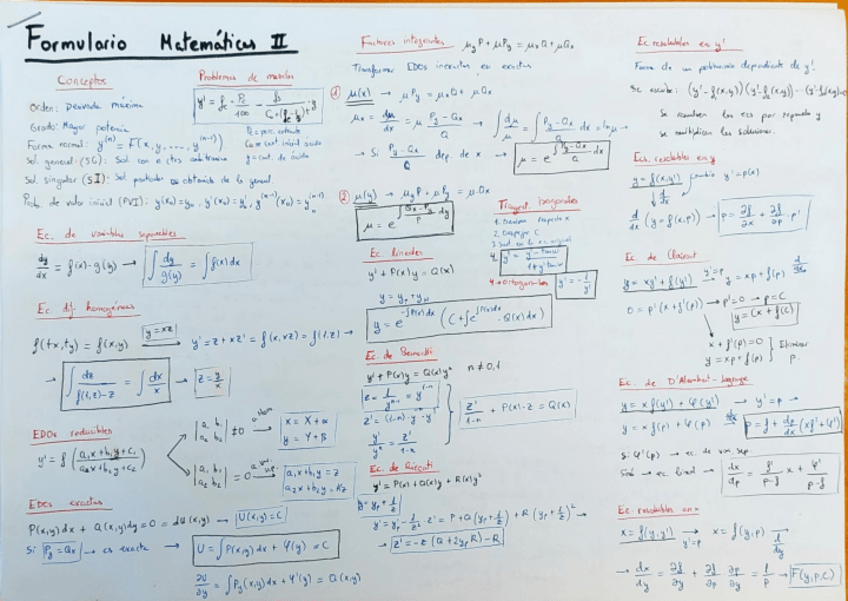 Formulario Matemáticas II
Conceptos
Orden: Derivada máxima
Grado: Mayor potencia
Forma normal: y⁽ⁿ⁾ = F(x, y, ..., y⁽ⁿ⁻¹⁾)
Sol. general: (SG): Sol con n ctes arbitrarias
Sol. singular (SI): Sol particular no obtenida de la general.
Prob. de valor inicial (PVI): y(x₀)=y₀, y'(x₀)=y'₀, y⁽ⁿ⁻¹⁾(x₀) = y₀⁽ⁿ⁻¹⁾
Problemas de mezclas
Ec. de variables separables
dy/dx = f(x)·g(y) → ∫ dy/g(y) = ∫ f(x) dx
Ec. dif. homogéneas
f(tx,ty) = f(x,y) y=xz → y' = z + xz' = f(x,xz) = f(1,z) →
→ ∫ dz/(f(1,z)-z) = ∫ dx/x → z = y/x
EDOs reducibles
y' = f((a₁x+b₁y+c₁)/(a₂x+b₂y+c₂))
|a₁ b₁ a₂ b₂| ≠ 0 → x = X+α
y = Y+β
|a₁ b₁ a₂ b₂| = 0 → a₁x+b₁y = z
a₂x+b₂y = kz
EDOs exactas
P(x,y)dx + Q(x,y)dy = 0 = dU(x,y) → U(x,y)=C
Si Py = Qx → es exacta → U = ∫P(x,y)dx + φ(y) = C
∂U/∂y = ∫Py(x,y)dx + φ'(y) = Q(x,y)
Factores integrantes μyP + μPy = μxQ + μQx
Transformar EDOs inexactas en exactas
① μ(x) → μPy = μxQ + μQx
μx = dμ/dx = μ (Py-Qx)/Q → ∫ dμ/μ = ∫ (Py-Qx)/Q dx = lnμ →
→ Si (Py-Qx)/Q dep. de x → μ = e^∫(Py-Qx)/Q dx
② μ(y) → μyP + μPy = μQx
μ = e^∫(Qx-Py)/P dy
Trayect. Isogonales
1. Derivar respecto x
2. Despejar C
Ec. lineales
y' + P(x)y = Q(x)
y = yp + yH
y = e^-∫P(x)dx (C + ∫e^∫P(x)dx · Q(x)dx)
Ec. de Bernoulli
y' + P(x)y = Q(x)yⁿ n ≠ 0,1
z = 1/yⁿ⁻¹ = y¹⁻ⁿ
z' = (1-n)·y⁻ⁿ·y'
y'/yⁿ = z'/(1-n)
z'/(1-n) + P(x)·z = Q(x)
Ec. de Riccati
y' = P(x) + Q(x)y + R(x)y²
y = yp + 1/z
y' = y'p - 1/z²·z' = P + Q(yp + 1/z) + R(yp + 1/z)² →
→ z' = -z(Q + 2ypR) - R
Ec. resolubles en y'
Forma de un polinomio dependiente de y'.
Se escribe: (y'-f₁(x,y))(y'-f₂(x,y))...
Se resuelven las ecs por separado y
se multiplican las soluciones.
Ecs. resolubles en y
y = f(x,y') cambio y' = p(x)
d/dx (y = f(x,p)) → p = ∂f/∂x + ∂f/∂p · p'
Ec. de Clairaut
y = xy' + f(y') y'=p → y = xp + f(p) d/dx
0 = p'(x + f'(p)) → p'=0 → p=C
y = Cx + f(C)
x + f'(p) = 0
y = xp + f(p) } Eliminar p.
Ec. de D'Alembert-Lagrange
y = xf(y') + φ(y') → y' = p →
y = xf(p) + φ(p) d/dx → p = f + dp/dx (xf' + φ')
→ ec. de var. sep.
→ ec. lineal → dx/dp = f'/(p-f) x + φ'/(p-f)
Ec. resolubles en x
x = f(y,y') → y'=p x = f(y,p) → d/dy
→ dx/dy = ∂f/∂y + ∂f/∂p ∂p/∂y = 1/p → F(y,p,C)